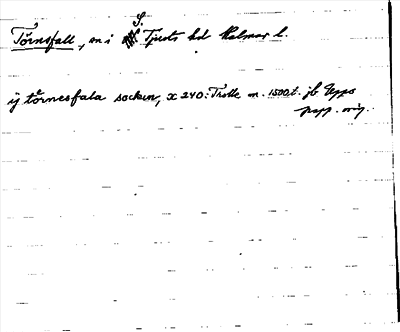 Törnsfall, sn i S. Tjusts hd Kalmar l.
ÿ törnesfala socken, x 240: Trolle m. 1500t. jb Upps
papp. orig.